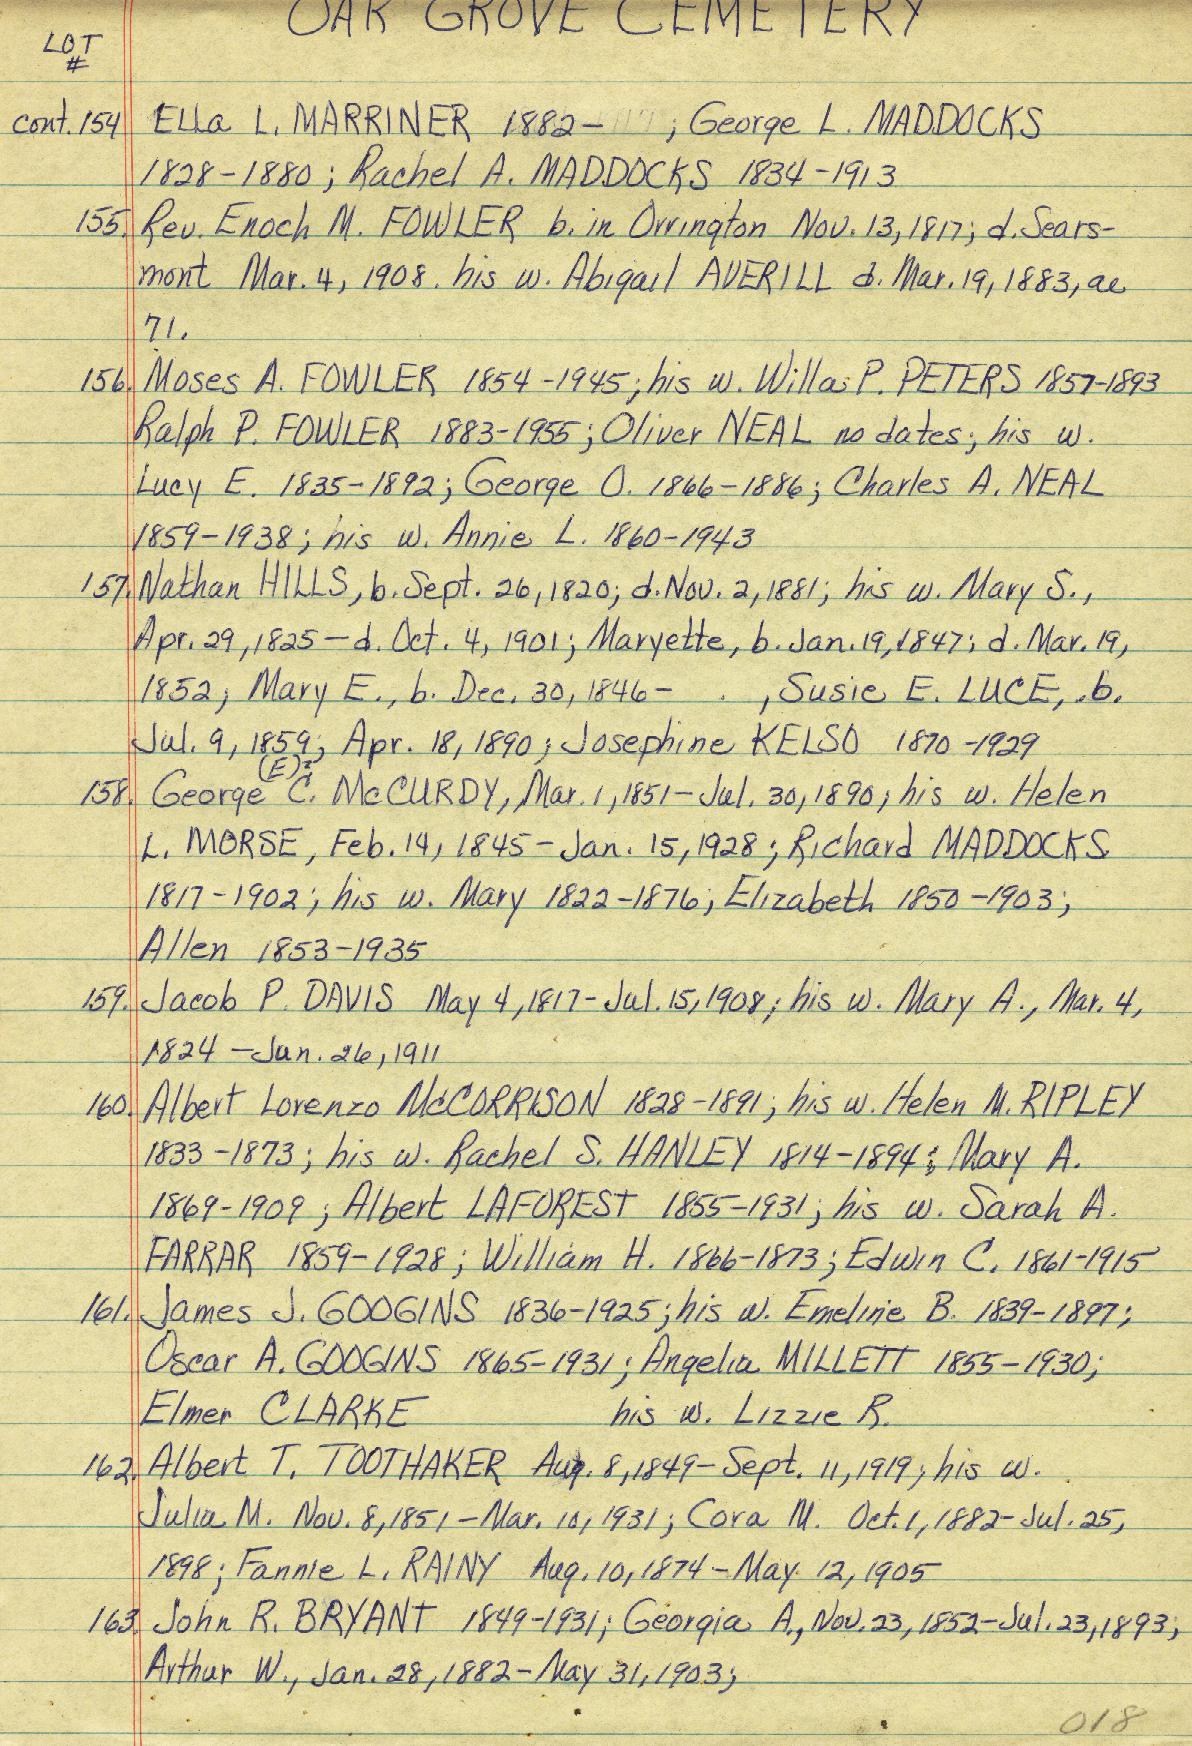 OAK GROVE CEMETERY
LOT
#
cont. 154 Ella L. MARRINER 1882- ; George L. MADDOCKS
1828-1880; Rachel A. MADDOCKS 1834-1913
155. Rev. Enoch M. FOWLER b. in Orrington Nov. 13, 1817; d. Sears-
mont Mar. 4, 1908. his w. Abigail AVERILL d. Mar. 19, 1883, ae
71.
156. Moses A. FOWLER 1854-1945; his w. Willa P. PETERS 1857-1893
Ralph P. FOWLER 1883-1955; Oliver NEAL no dates; his w.
Lucy E. 1835-1892; George O. 1866-1886; Charles A. NEAL
1859-1938; his w. Annie L. 1860-1943
157. Nathan HILLS, b. Sept. 26, 1820; d. Nov. 2, 1881; his w. Mary S.,
Apr. 29, 1825-d. Oct. 4, 1901; Maryette, b. Jan. 19, 1847; d. Mar. 19,
1852; Mary E., b. Dec. 30, 1846- , Susie E. LUCE, b.
Jul. 9, 1859; Apr. 18, 1890; Josephine KELSO 1870-1929
(E)?
158. George C. McCURDY, Mar. 1, 1851-Jul. 30, 1890; his w. Helen
L. MORSE, Feb. 14, 1845-Jan. 15, 1928; Richard MADDOCKS
1817-1902; his w. Mary 1822-1876; Elizabeth 1850-1903;
Allen 1853-1935
159. Jacob P. DAVIS May 4, 1817-Jul. 15, 1908; his w. Mary A., Mar. 4,
1824-Jun. 26, 1911
160. Albert Lorenzo McCORRISON 1828-1891; his w. Helen M. RIPLEY
1833-1873; his w. Rachel S. HANLEY 1814-1894; Mary A.
1869-1909; Albert LAFOREST 1855-1931; his w. Sarah A.
FARRAR 1859-1928; William H. 1866-1873; Edwin C. 1861-1915
161. James J. GOOGINS 1836-1925; his w. Emeline B. 1839-1897;
Oscar A. GOOGINS 1865-1931; Angelia MILLETT 1855-1930;
Elmer CLARKE his w. Lizzie R.
162. Albert T. TOOTHAKER Aug. 8, 1849-Sept. 11, 1919; his w.
Julia M. Nov. 8, 1851-Mar. 10, 1931; Cora M. Oct. 1, 1882-Jul. 25,
1898; Fannie L. RAINY Aug. 10, 1874-May 12, 1905
163. John R. BRYANT 1849-1931; Georgia A., Nov. 23, 1852-Jul. 23, 1893;
Arthur W., Jan. 28, 1882-May 31, 1903;
018